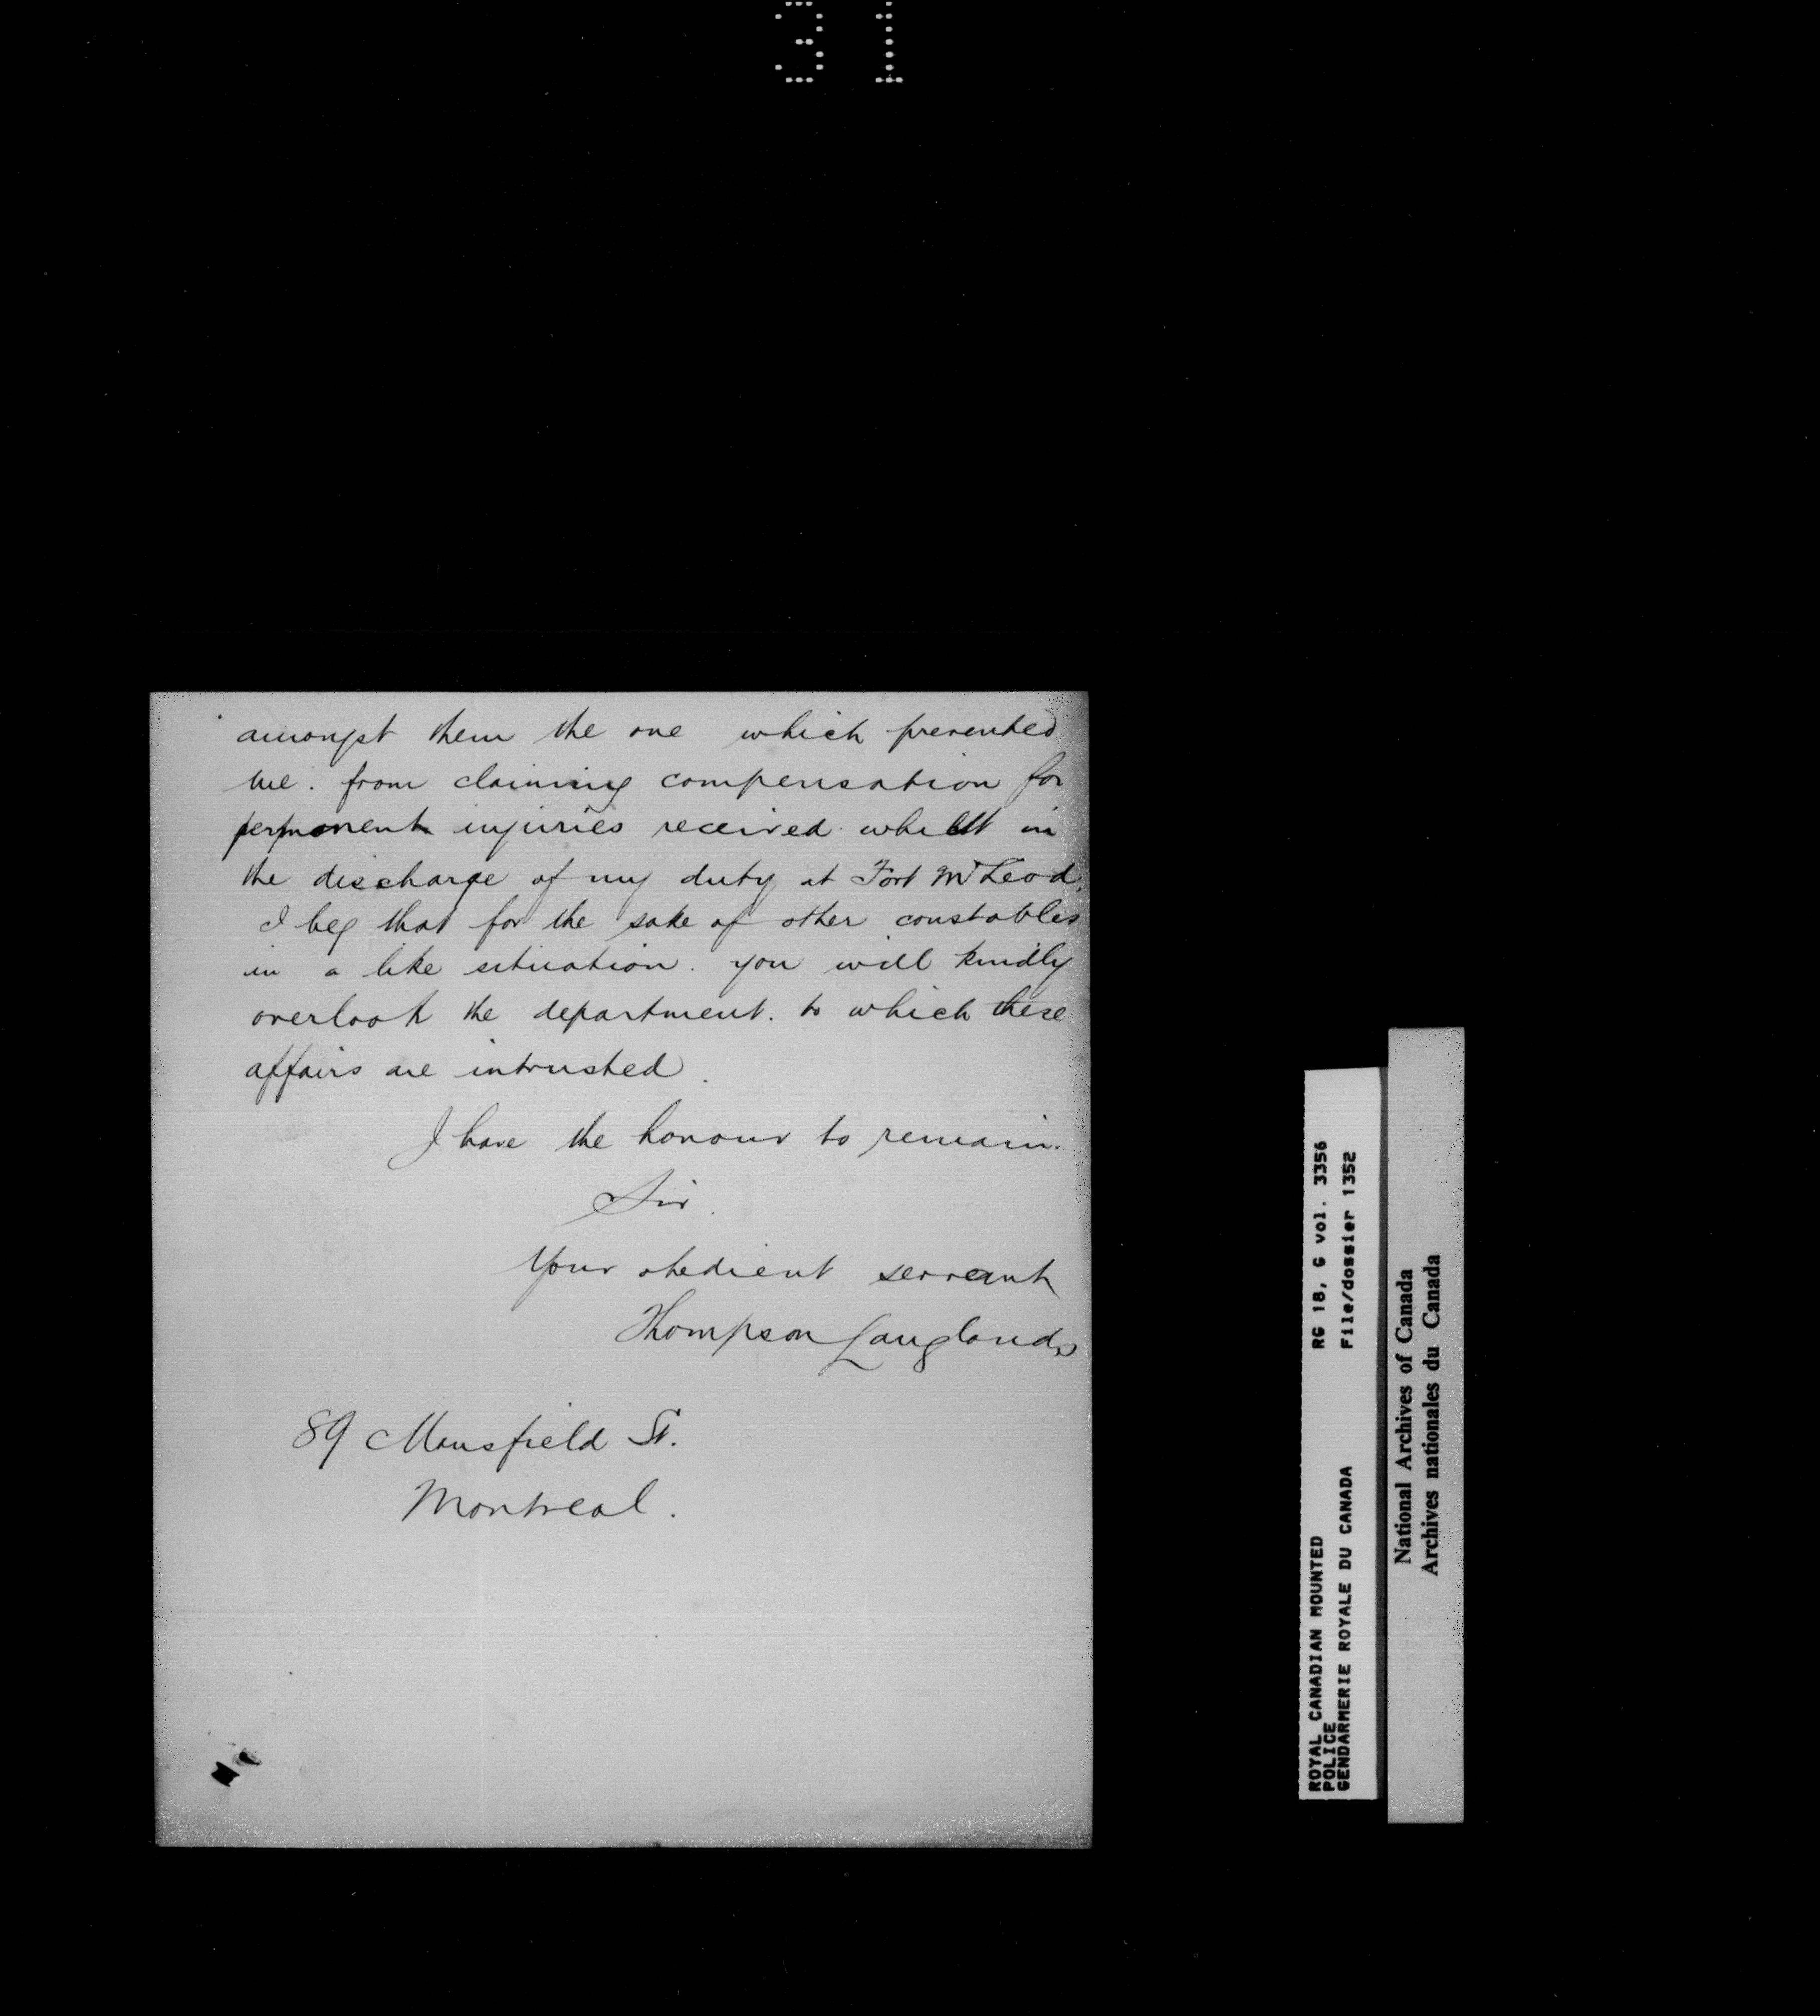 31
amongst them the one which prevented
me. from claiming compensation for
permanent injuries received whilst in
the discharge of my duty at Fort McLeod,
I beg that for the sake of other constables
in a like situation. you will kindly
overlook the department. to which these
affairs are intrusted.
I have the honour to remain.
Sir.
Your obedient servant
Thompson Langlands
89 Mansfield St.
Montreal.
ROYAL CANADIAN MOUNTED RG 18, G vol. 3356
POLICE
GENDARMERIE ROYALE DU CANADA File/dossier 1352
National Archives of Canada
Archives nationales du Canada